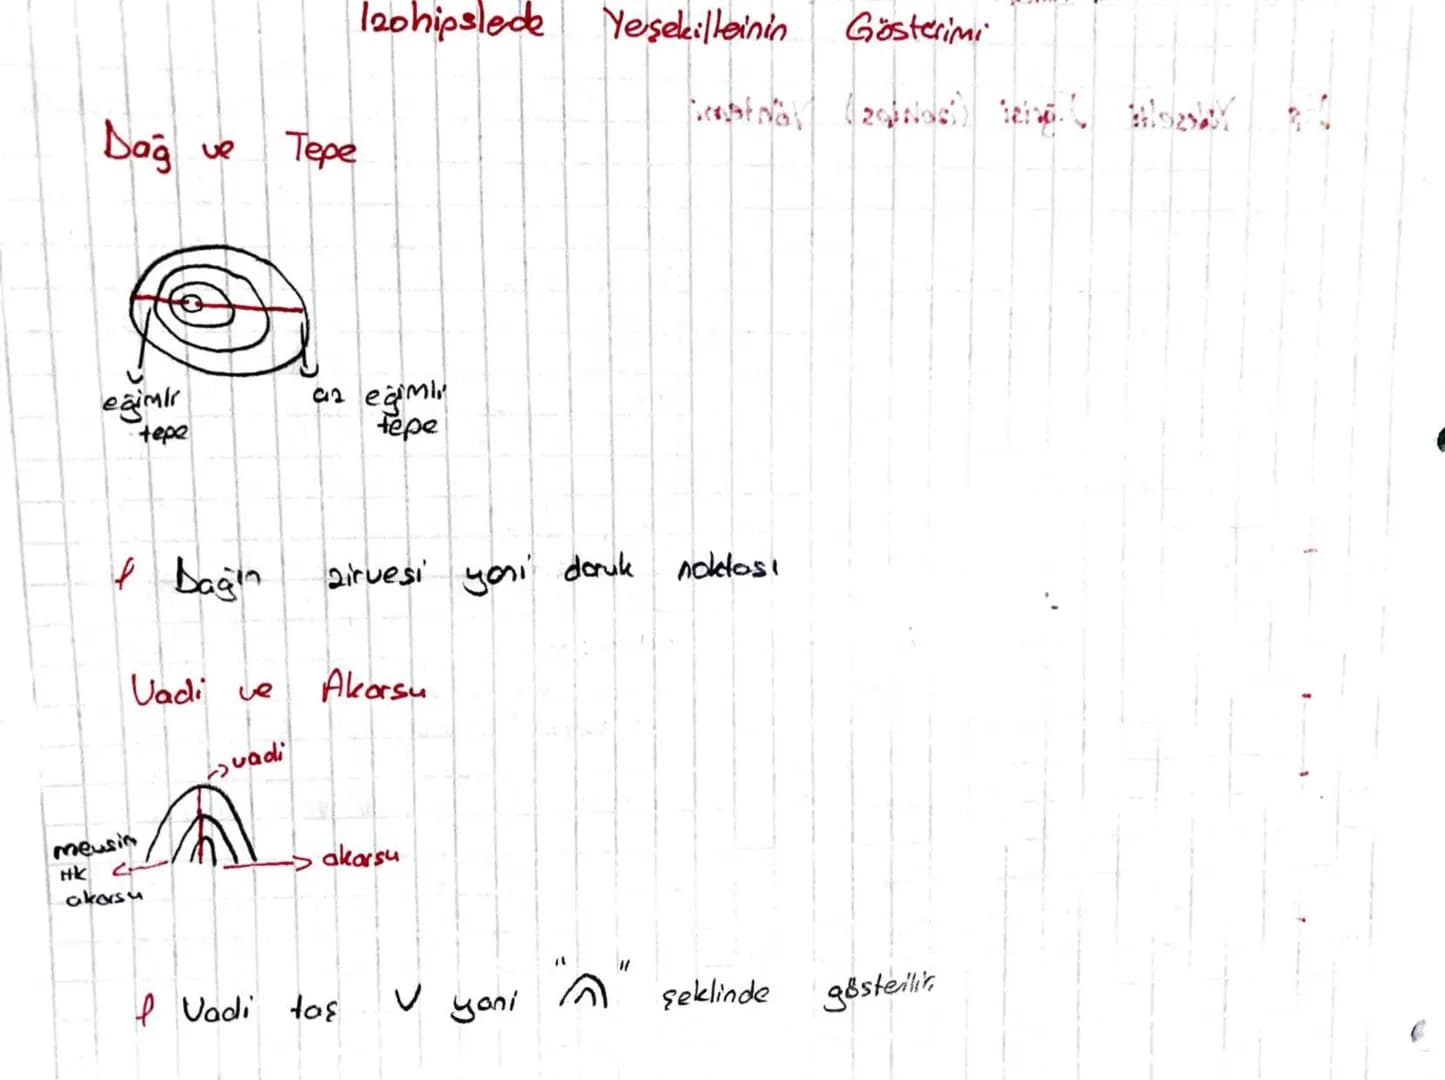 Izohipslede Yerşekillerinin Gösterimi
Dağ ve Tepe
eğimli
tepe
az eğimli
tepe
Dağın zirvesi yani doruk noktası
Vadi ve Akarsu
vadi
mevsim
lik
akarsu
akarsu
Vadi tas V yani " " şeklinde gösterilir.